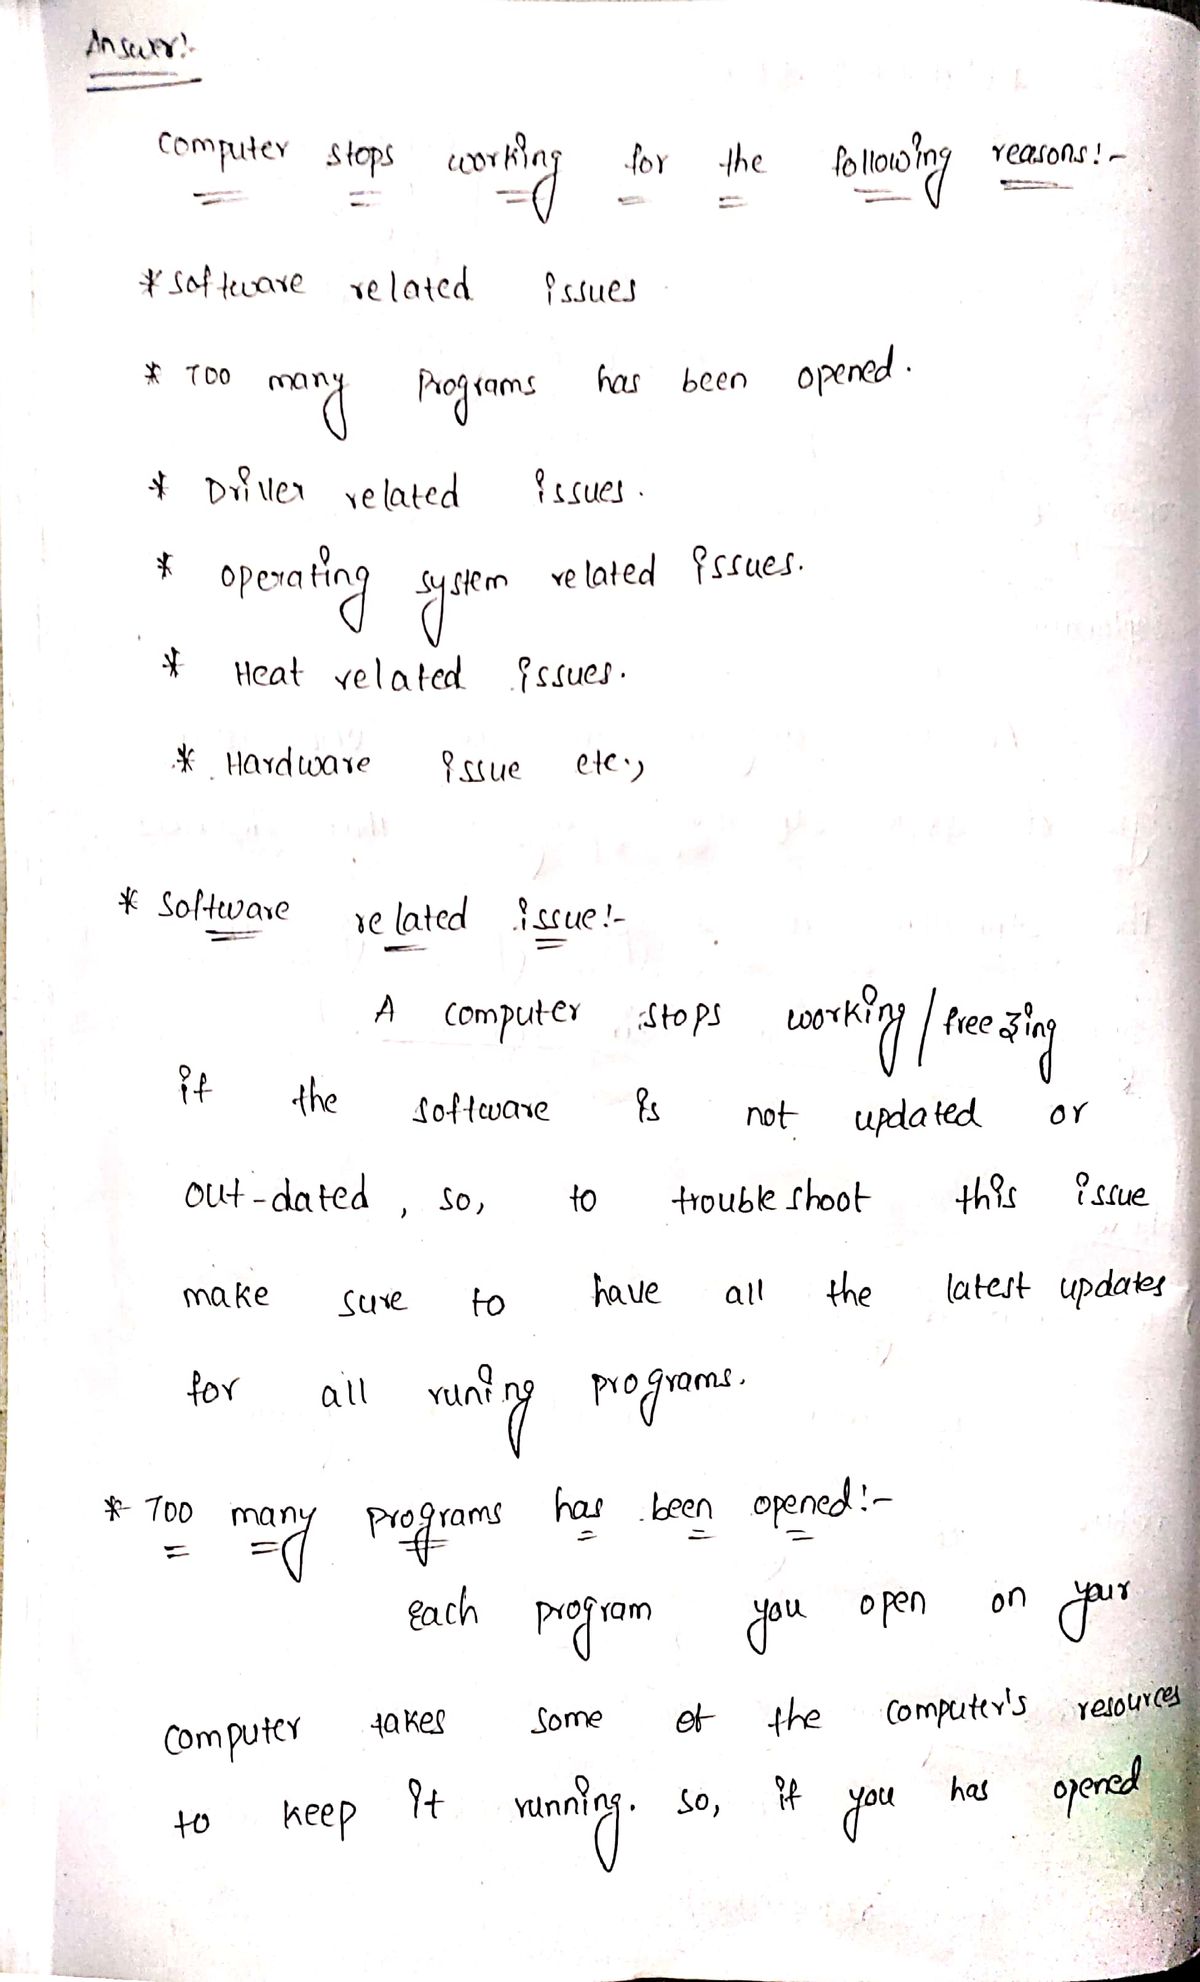 Answer:-
Computer stops working for the following reasons:-
* Software related issues
* Too many Programs has been opened.
* Driver related issues.
* Operating system related issues.
* Heat related issues.
* Hardware issue etc.,
* Software related issue:-
A computer stops working/freezing
if the software is not updated or
out-dated, so, to troubleshoot this issue
make sure to have all the latest updates
for all runing programs.
* Too many programs has been opened:-
Each program you open on your
computer takes some of the computer's resources
to keep it running. so, if you has opened